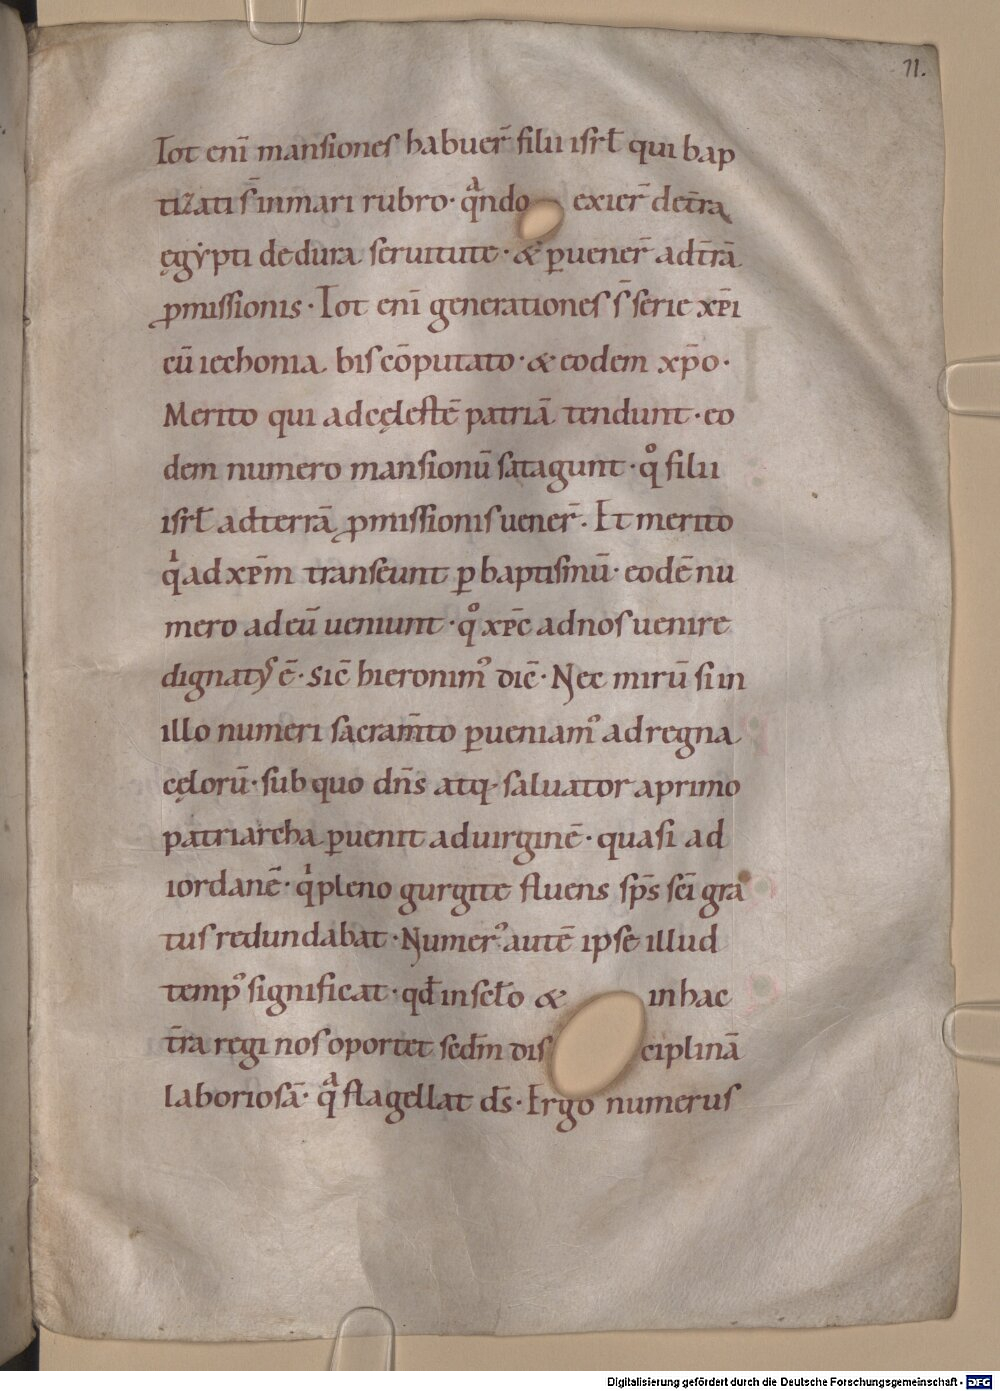 11.
Tot enī mansiones habuer̄ filii isrl̄ qui bap
tizati s̄ in mari rubro· qͣndo exier̄ de tr̄a
ęgẏpti de dura seruitute· & ꝑuener̄ ad tr̄ā
ꝓmissionis· Tot enī generationes s̄ serie xp̄i
cū iechonia bis cōputato· & eodem xp̄o·
Merito qui ad cęlestē patriā tendunt· eo
dem numero mansionū satagunt· qͦ filii
isrl̄ ad terrā ꝓmissionis uener̄. Et merito
qͥ ad xp̄m transeunt ꝑ baptismū· eodē nu
mero ad eū ueniunt· qͦ xp̄c ad nos uenire
dignatꝰ ē· sic̄ hieronimꝰ dic̄· Nec mirū si in
illo numeri sacram̄to ꝑueniamꝰ ad regna
cęlorū· sub quo dn̄s atq· saluator a primo
patriarcha ꝑuenit ad uirginē· quasi ad
iordanē· qͥ pleno gurgite fluens sp̄s sc̄i gra
tus redundabat· Numerꝰ autē ipse illud
tempꝰ significat· qd̄ in scl̄o & in hac
tr̄a regi nos oportet scd̄m dis ciplinā
laboriosā· qͣ flagellat ds̄· Ergo numerus
Digitalisierung gefördert durch die Deutsche Forschungsgemeinschaft - DFG